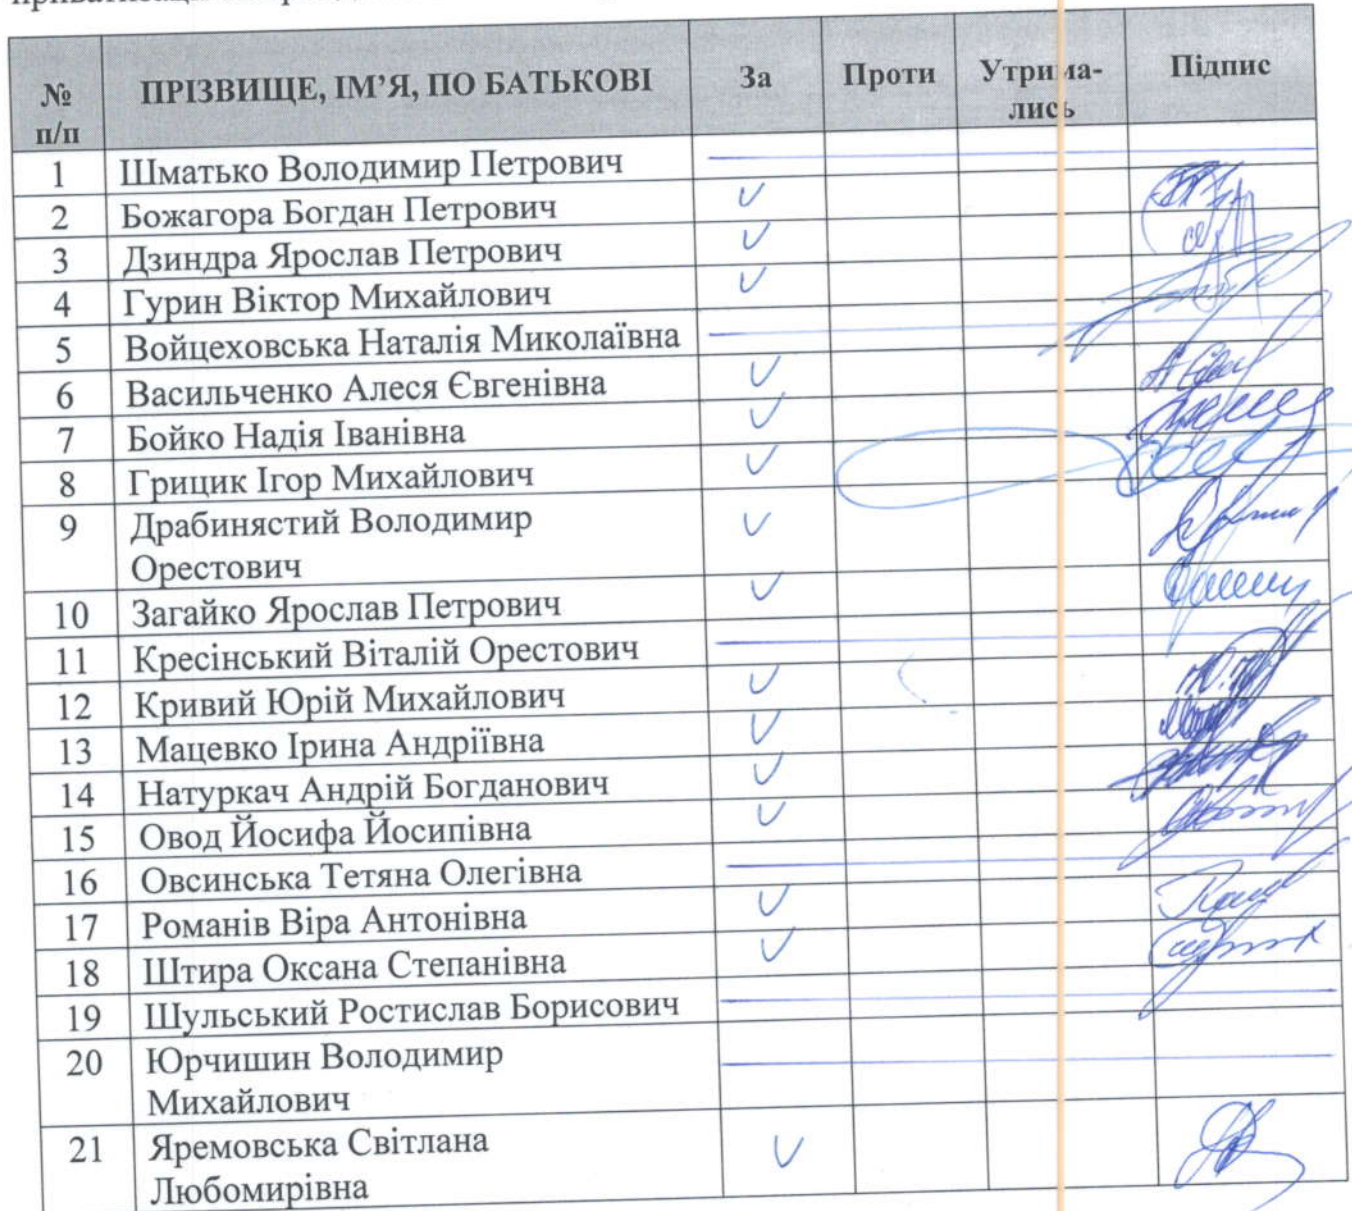 № ПРІЗВИЩЕ, ІМ’Я, ПО БАТЬКОВІ За Проти Утрима- Підпис
п/п лись
1 Шматько Володимир Петрович
2 Божагора Богдан Петрович V
3 Дзиндра Ярослав Петрович V
4 Гурин Віктор Михайлович V
5 Войцеховська Наталія Миколаївна
6 Васильченко Алеся Євгенівна V
7 Бойко Надія Іванівна V
8 Грицик Ігор Михайлович V
9 Драбинястий Володимир V
Орестович
10 Загайко Ярослав Петрович V
11 Кресінський Віталій Орестович
12 Кривий Юрій Михайлович V
13 Мацевко Ірина Андріївна V
14 Натуркач Андрій Богданович V
15 Овод Йосифа Йосипівна V
16 Овсинська Тетяна Олегівна
17 Романів Віра Антонівна V
18 Штира Оксана Степанівна V
19 Шульський Ростислав Борисович
20 Юрчишин Володимир
Михайлович
21 Яремовська Світлана V
Любомирівна